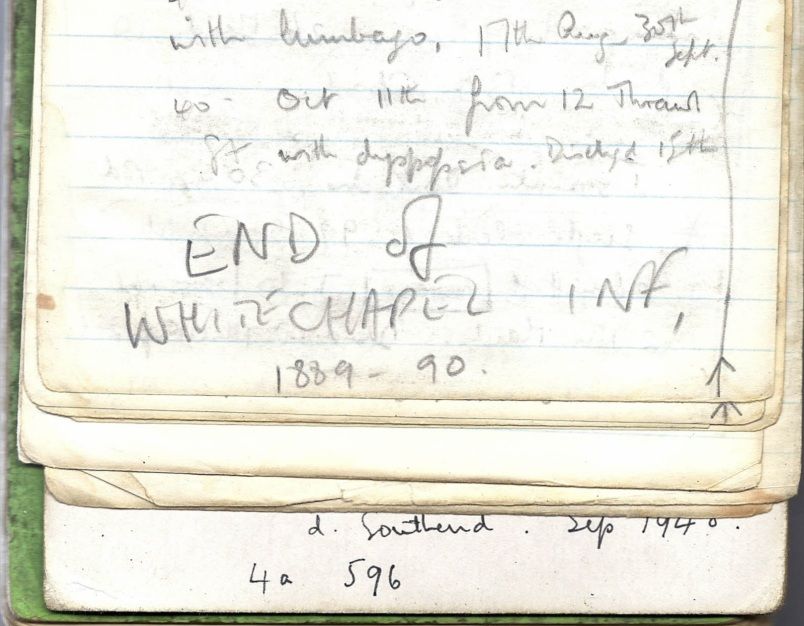 with lumbago. 17th Aug - 30th
Sept.
40 - Oct 11th from 12 Thrawl
St with dyspepsia. Dischgd 15th
END of
WHITECHAPEL INF,
1889 - 90.
d. Southend. Sep 1940.
4a 596